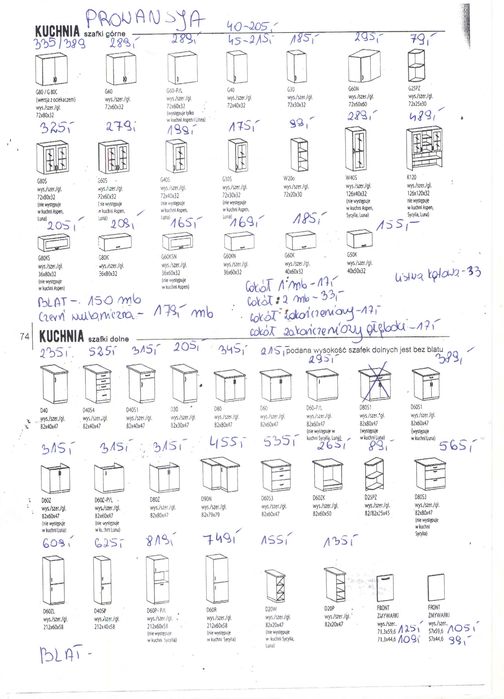 PROWANSJA
KUCHNIA szafki górne
40-205,-
335/389 289,- 289,- 45-215,- 185,- 295,- 79,-
G80 / G 80C G60 G60-P/L G40 G30 G60N G25PZ
(wersja z ociekaczem) wys./szer./gł. wys./szer./gł. wys./szer./gł. wys./szer./gł. wys./szer./gł. wys./szer./gł.
wys./szer./gł. 72x60x32 72x60x32 72x40x32 72x30x32 72x60x60 72x25x30
72x80x32 (występuje tylko
w kuchni Aspen i Luna)
325,- 279,- 199,- 175,- 99,- 289,- 489,-
G80S G60S G40S G30S W20o W40S K120
wys./szer./gł. wys./szer./gł. wys./szer./gł. wys./szer./gł. wys./szer./gł. wys./szer./gł. wys./szer./gł.
72x80x32 72x60x32 72x40x32 72x30x32 72x20x30 126x40x32 126x120x32
(nie występuje (nie występuje (nie występuje (nie występuje (nie występuje (nie występuje
w kuchni Aspen, w kuchni Aspen, w kuchni Aspen, w kuchni Aspen, w kuchni Aspen, w kuchni Aspen,
Luna) Luna) Luna) Luna) Sycylia, Luna) Sycylia, Luna)
205,- 209,- 165,- 169,- 185,- 155,-
G80KS G80K G60KSN G60KN G60K G50K
wys./szer./gł. wys./szer./gł. wys./szer./gł. wys./szer./gł. wys./szer./gł. wys./szer./gł.
36x80x32 36x80x32 36x60x32 36x60x32 40x60x32 40x50x32
(nie występuje (nie występuje
w kuchni Aspen, w kuchni Aspen,
Luna) Luna)
listwa kątowa - 33
BLAT - 150 mb
cokół 1 mb - 17,-
cokół 2 mb - 33,-
179,- mb
cokół zakończeniowy - 17,-
cokół zakończeniowy głęboki - 17,-
74
KUCHNIA szafki dolne
podana wysokość szafek dolnych jest bez blatu
235,- 525,- 315,- 205,- 345,- 215,- 295,- 379,-
D40 D40S4 D40S1 D30 D80 D60 D60-P/L D80S1 D60S1
wys./szer./gł. wys./szer./gł. wys./szer./gł. wys./szer./gł. wys./szer./gł. wys./szer./gł. wys./szer./gł. wys./szer./gł. wys./szer./gł.
82x40x47 82x40x47 82x40x47 82x30x47 82x80x47 82x60x47 82x60x47 82x80x47 82x60x47
(nie występuje
w kuchni Sycylia, Luna)
(nie występuje
w kuchni Luna)
315,- 315,- 315,- 455,- 535,- 265,- 89,- 565,-
D60Z D60Z-P/L D80Z D90N D60S3 D60ZK D25PZ D80S3
wys./szer./gł. wys./szer./gł. wys./szer./gł. wys./szer./gł. wys./szer./gł. wys./szer./gł. wys./szer./gł. wys./szer./gł.
82x60x47 82x60x47 82x80x47 82x79x79 82x60x47 82x60x50 82/82x25x45 82x80x47
(nie występuje (nie występuje (nie występuje (nie występuje
w kuchni Luna) w kuchni Sycylia, Luna) w kuchni Luna) w kuchni Sycylia)
609,- 625,- 819,- 749,- 155,- 135,-
D60ZL D40SP D60P-P/L D60R D20W D20P FRONT FRONT
wys./szer./gł. wys./szer./gł. wys./szer./gł. wys./szer./gł. wys./szer./gł. wys./szer./gł. ZMYWARKI ZMYWARKI
212x60x58 212x40x58 212x60x58 212x60x58 82x20x47 82x20x47 wys./szer. wys./szer.
(nie występuje (nie występuje (nie występuje
w kuchni w kuchni w kuchni
Sycylia, Luna) Sycylia, Luna) Sycylia, Luna)
71,3x59,6 125,- 57x59,6 105,-
71,3x44,6 109,- 57x44,6 99,-
BLAT -